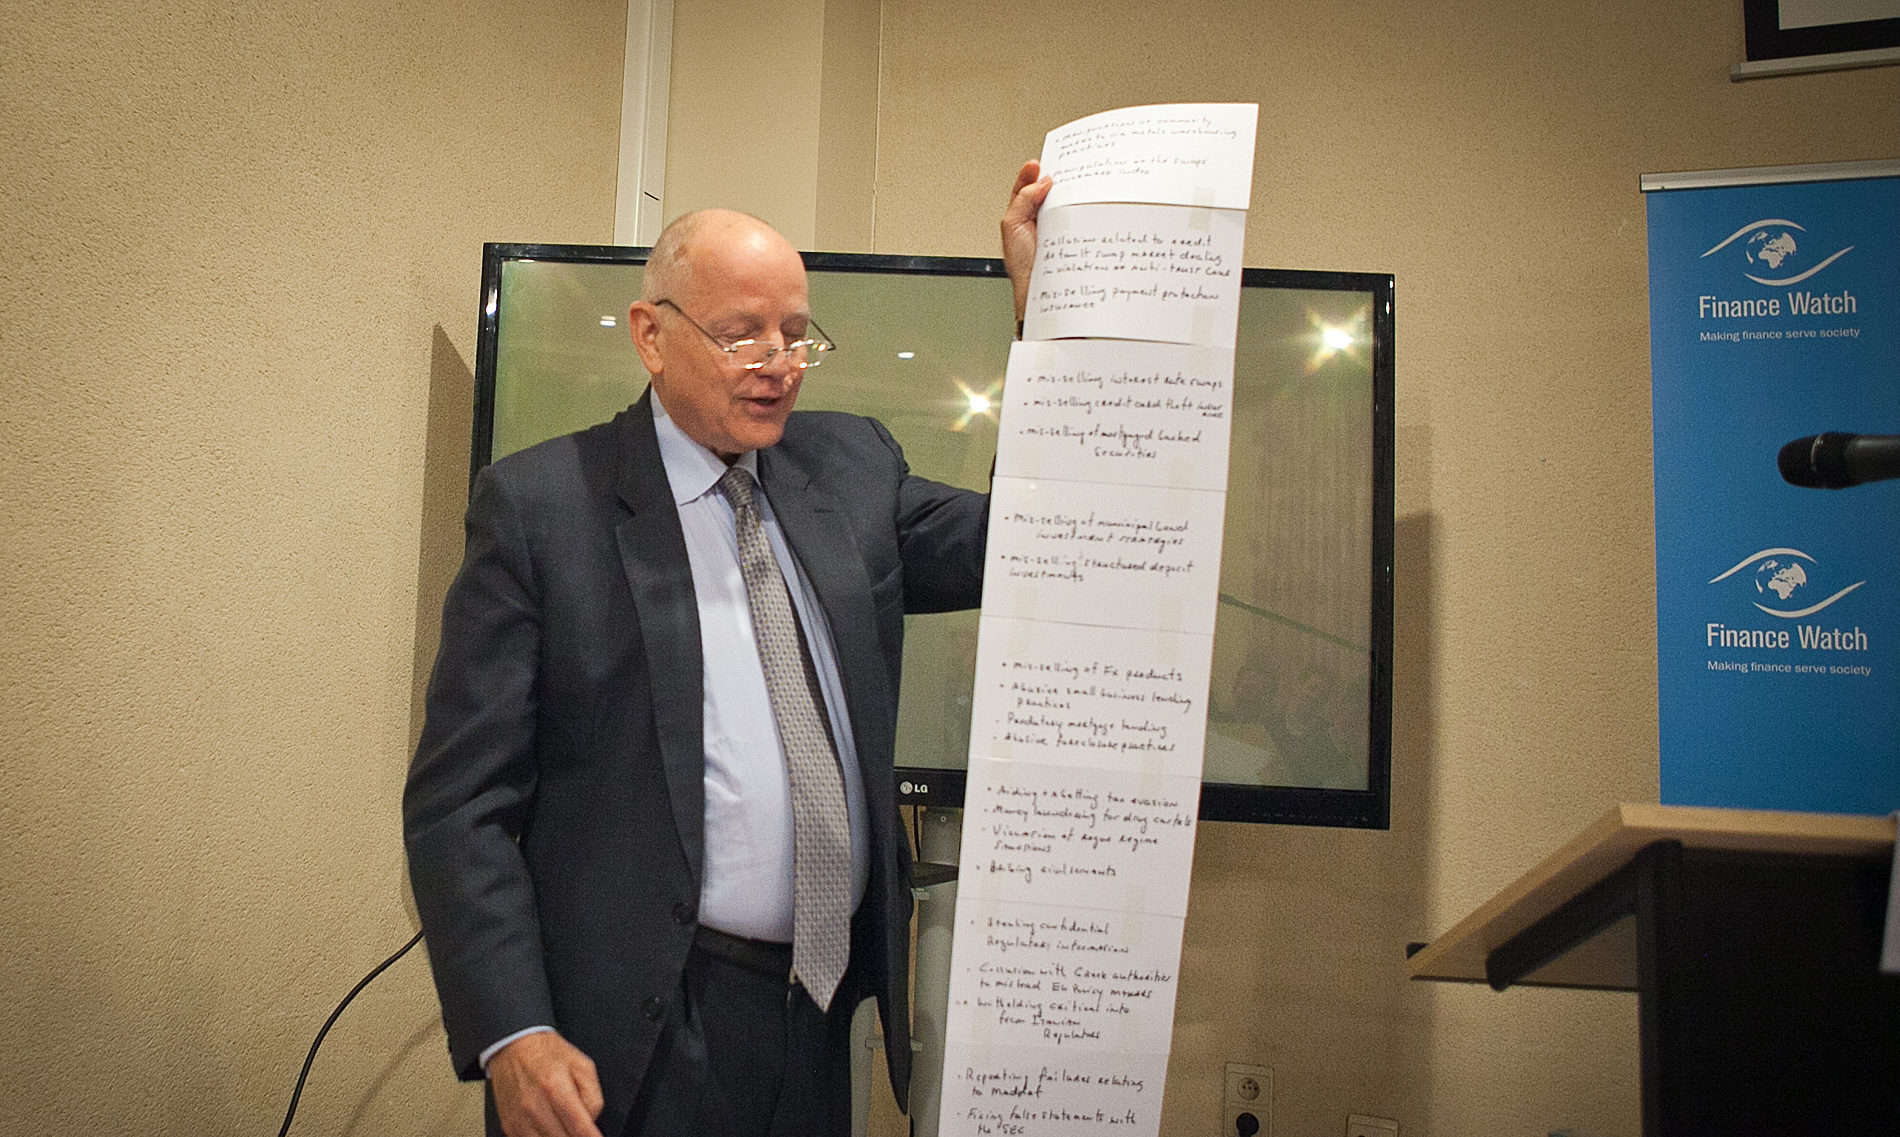 • manipulation of commodity
markets via metals warehousing
practices
manipulation of the swaps
benchmark index
Collusion related to credit
default swap market dealing
in violation of anti-trust laws
• mis-selling payment protection
insurance
• mis-selling interest rate swaps
• mis-selling credit card theft insurance
• mis-selling of mortgaged backed
securities
• mis-selling of municipal bond
investment strategies
• mis-selling structured deposit
investments
• mis-selling of Fx products
• Abusive small business lending
practices
- Predatory mortgage lending
- Abusive foreclosure practices
• Aiding + abetting tax evasion
- Money laundering for drug cartels
- Violation of rogue regime
sanctions
• Bribing civil servants
• Stealing confidential
Regulatory information
- Collusion with Greek authorities
to mislead EU Policy makers
• Witholding critical info
from Italian
Regulators
• Reporting failures relating
to Madoff
- Filing false statements with
the SEC
LG
Finance Watch
Making finance serve society
Finance Watch
Making finance serve society